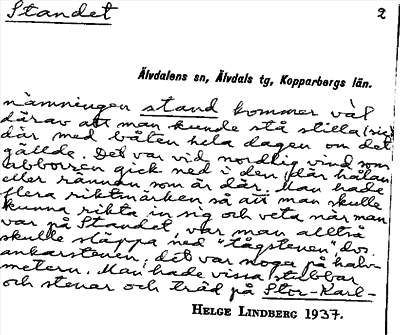 Standet
2
Älvdalens sn, Älvdals tg, Kopparbergs län.
nämningen stand kommer väl
därav att man kunde stå stilla (sic)
där med båten hela dagen om det
gällde. Det var vid nordlig vind som
abborren gick ned i den där hålan
eller rännan som är där. Man hade
flera riktmärken så att man skulle
kunna rikta in sig och veta när man
var på Standet, var man alltså
skulle släppa ned "tågstenen" dvs.
ankarstenen; det var noga på halv-
metern. Man hade vissa stubbar
och stenar och träd på Stor-Karl-
HELGE LINDBERG 1937.